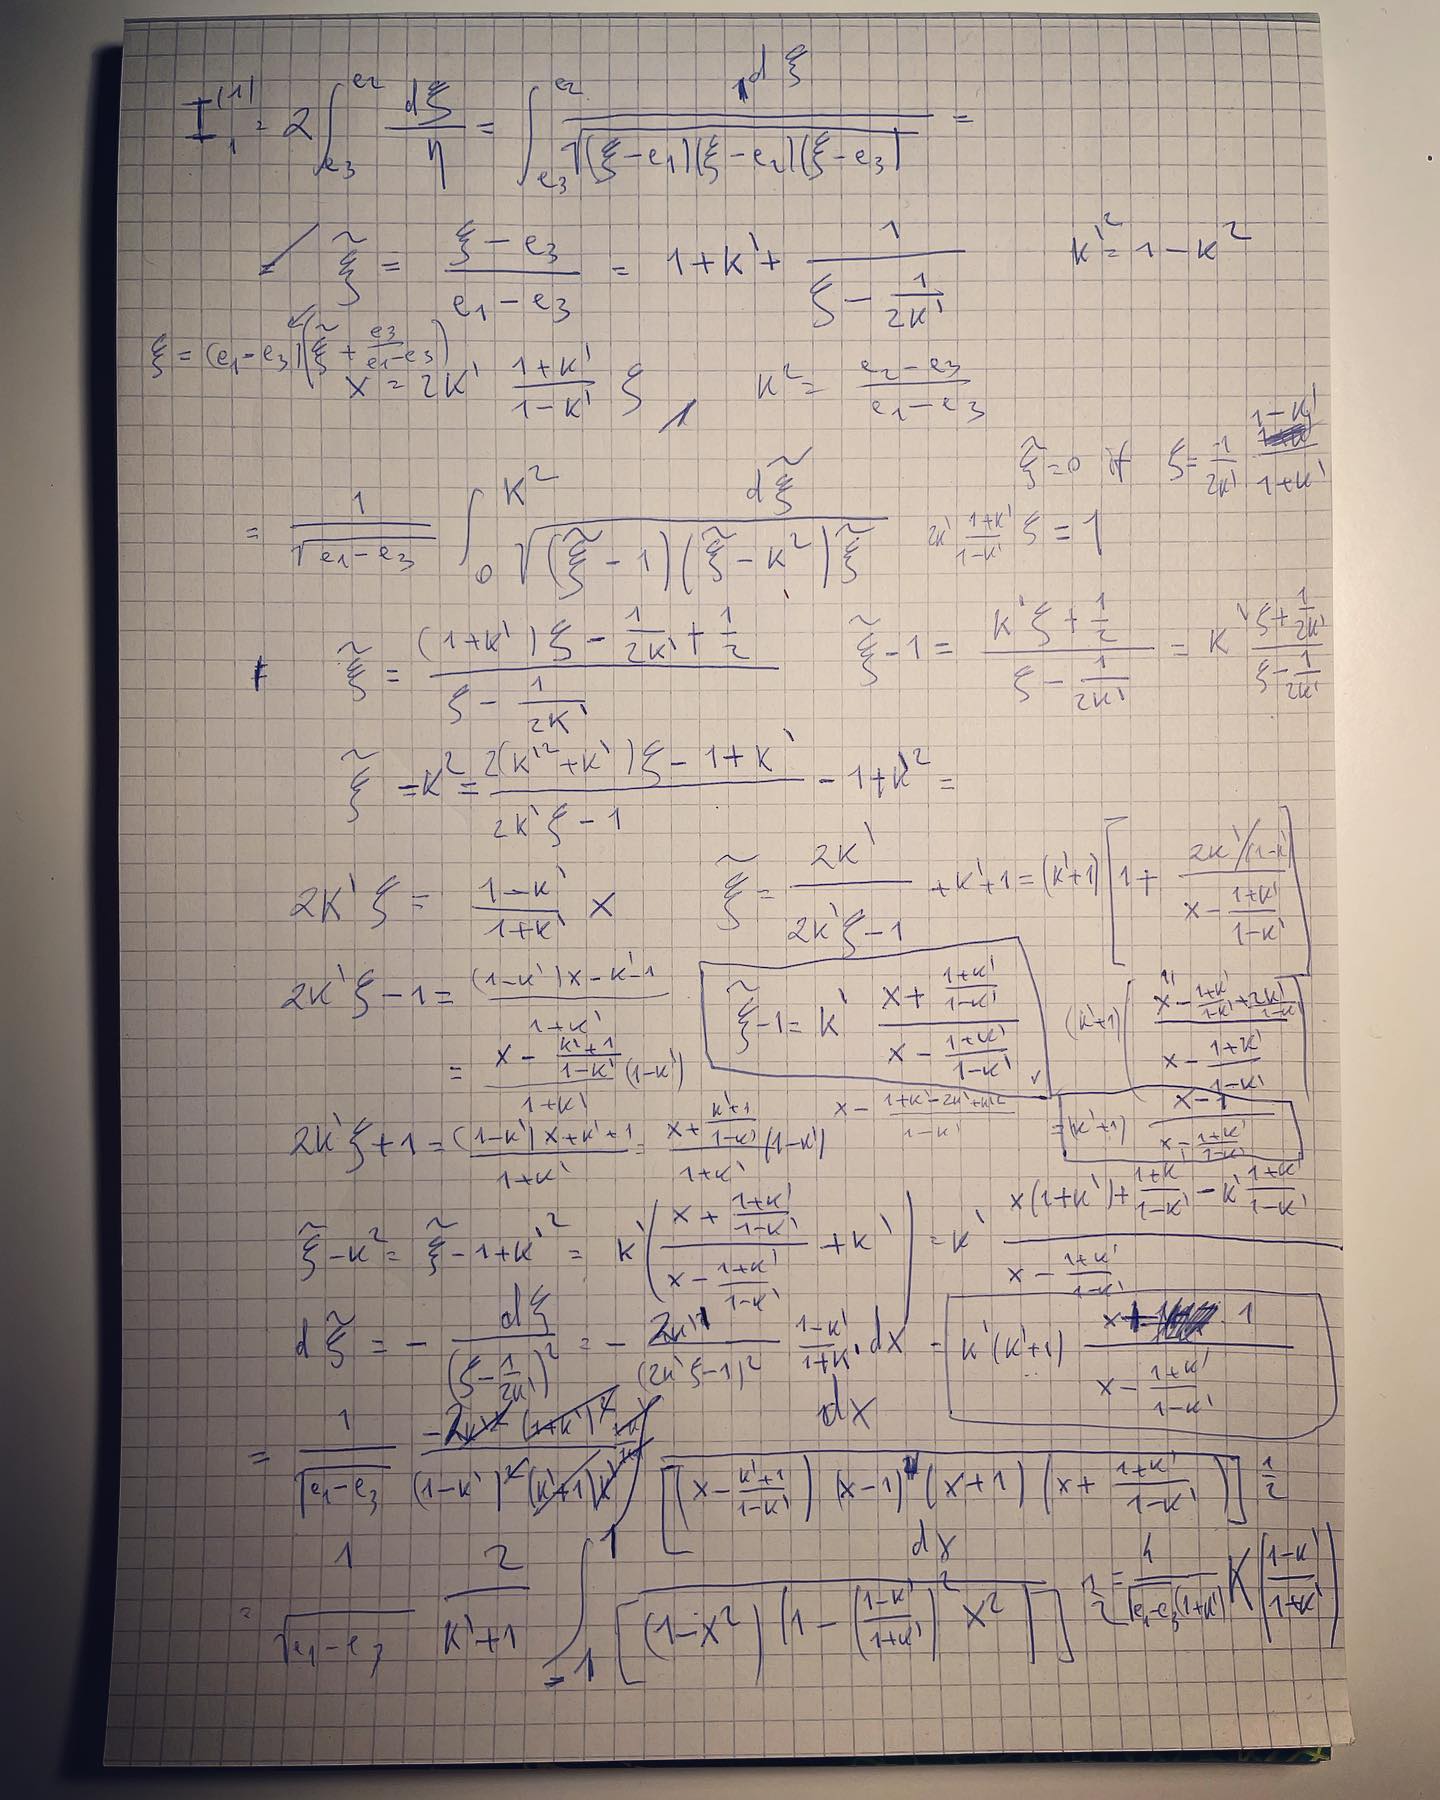 I₁⁽¹⁾ = 2 ∫_{e₃}^{e₂} dξ/η = ∫_{e₃}^{e₂} dξ / √((ξ-e₁)(ξ-e₂)(ξ-e₃)) =
ξ̃ = (ξ-e₃)/(e₁-e₃) = 1+k'+ 1/(ζ - 1/(2k')) k'² = 1-k²
ξ = (e₁-e₃)(ξ̃ + e₃/(e₁-e₃))
x = 2k' (1+k')/(1-k') ζ, k² = (e₂-e₃)/(e₁-e₃)
ξ̃=0 if ζ = 1/(2k') (1-k')/(1+k')
= 1/√(e₁-e₃) ∫_0^{k²} dξ̃ / √((ξ̃-1)(ξ̃-k²)ξ̃) 2k' (1+k')/(1-k') ζ = 1
ξ̃ = ((1+k')ζ - 1/(2k') + 1/2)/(ζ - 1/(2k')) ξ̃-1 = (k'ζ + 1/2)/(ζ - 1/(2k')) = k' (ζ + 1/(2k'))/(ζ - 1/(2k'))
ξ̃ -k² = (2(k'²+k')ζ - 1+k')/(2k'ζ-1) - 1+k'² =
2k'ζ = (1-k')/(1+k') x ξ̃ = 2k'/(2k'ζ-1) + k'+1 = (k'+1)[1+ (2k'/(1-k'))/(x - (1+k')/(1-k'))]
2k'ζ-1 = ((1-k')x-k'-1)/(1+k') ξ̃-1 = k' (x + (1+k')/(1-k'))/(x - (1+k')/(1-k')) (k'+1)(x - (1+k')/(1-k') + 2k'/(1-k'))/(x - (1+k')/(1-k'))
= (x - (k'+1)/(1-k'))/(1+k') (1-k')
x - (1+k'-2k'+k'²)/(1-k') = (k'+1) (x-1)/(x - (1+k')/(1-k'))
2k'ζ+1 = ((1-k')x+k'+1)/(1+k') = (x + (k'+1)/(1-k'))/(1+k') (1-k')
ξ̃-k² = ξ̃-1+k'² = k'((x + (1+k')/(1-k'))/(x - (1+k')/(1-k')) + k') = k' (x(1+k') + (1+k')/(1-k') - k' (1+k')/(1-k'))/(x - (1+k')/(1-k'))
dξ̃ = - dζ/(ζ - 1/(2k'))² = - 2k'/(2k'ζ-1)² (1-k')/(1+k') dx = k'(k'+1) (x+1)/(x - (1+k')/(1-k'))
= 1/√(e₁-e₃) ∫ dx / [(x - (k'+1)/(1-k'))(x-1)(x+1)(x + (1+k')/(1-k'))]^{1/2}
= 1/√(e₁-e₃) 2/(k'+1) ∫_{-1}^{1} dx / [(1-x²)(1-((1-k')/(1+k'))² x²)]^{1/2} = 4/(√(e₁-e₃)(1+k')) K((1-k')/(1+k'))